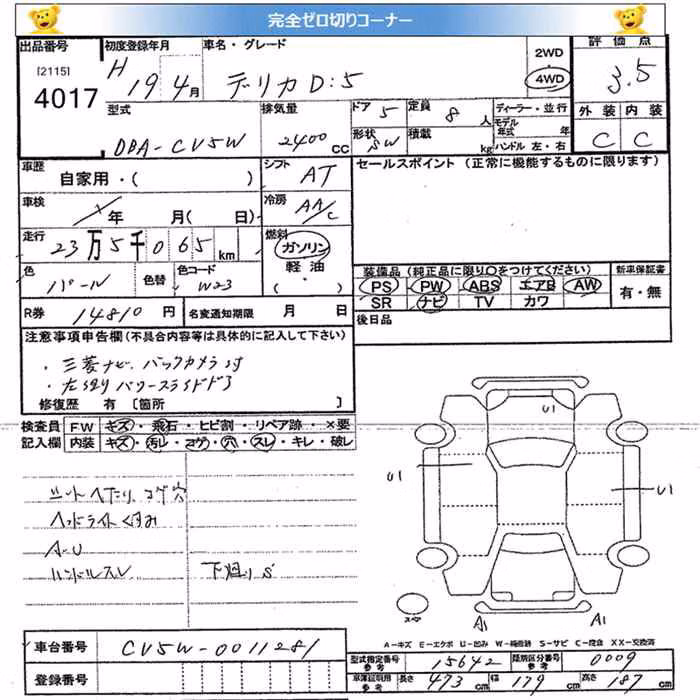 完全ゼロ切りコーナー
出品番号
[2115]
4017
初度登録年月
H 19 4月
車名・グレード
デリカD:5
2WD
4WD
評価点
3.5
型式
DBA-CV5W
排気量
2400 cc
ドア 5
定員 8 人
形状 SW
積載 kg
ディーラー・並行
モデル年式 年
ハンドル 左・右
外装 内装
C C
車歴
自家用・( )
シフト AT
セールスポイント (正常に機能するものに限ります)
車検
年 月( 日)
冷房 AA/C
走行
23万5千065km
燃料
ガソリン
軽油
( ・ )
色
パール
色替
色コード
W23
装備品 (純正品に限り○をつけてください)
PS PW ABS エアB AW
SR ナビ TV カワ
新車保証書
有・無
R券 14810円
名変通知期限 月 日
後日品
注意事項申告欄(不具合内容等は具体的に記入して下さい)
・三菱ナビ、バックカメラ付
・左側パワースライドドア
修復歴 有 〔箇所 〕
検査員
記入欄
FW キズ・飛石・ヒビ割・リペア跡・×要
内装 キズ・汚レ・コゲ・穴・スレ・キレ・破レ
シートへたり、コゲ穴
ヘッドライトくすみ
A・U
ハンドルスレ
下廻りS
U1
U1
U1
スペア
A1
A1
A-キズ E-エクボ U-凹み W-補修跡 S-サビ C-腐食 XX-交換済
車台番号
CV5W-0011281
登録番号
型式指定番号
参考
15642
類別区分番号
参考
0009
車庫証明用
参考
長さ 473 cm
幅 179 cm
高さ 187 cm